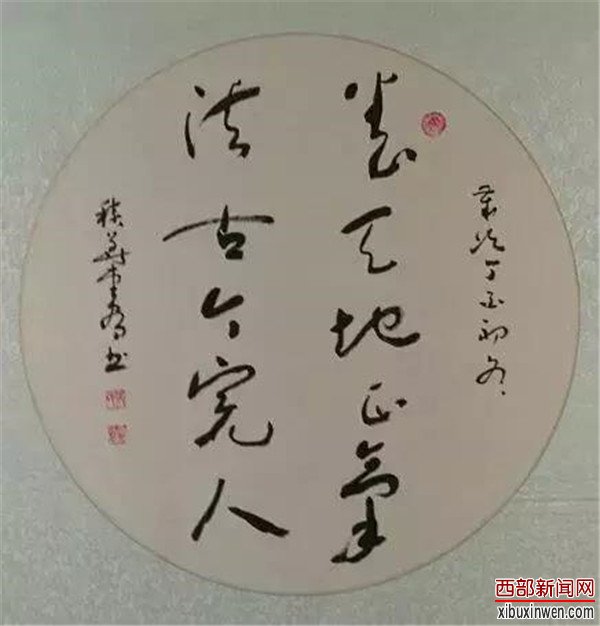 岁次丁酉初冬
养天地正气
法古今完人
书
西部新闻网
xibuxinwen.com